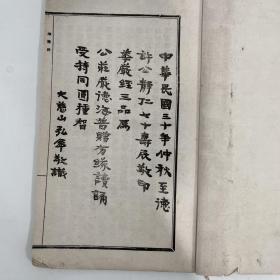 中華民國三十年仲秋至德
許公靜仁七十壽辰敬印
華嚴經三品爲
公莊嚴德海普贈有緣讀誦
受持同圓種智
大慈山弘傘敬識